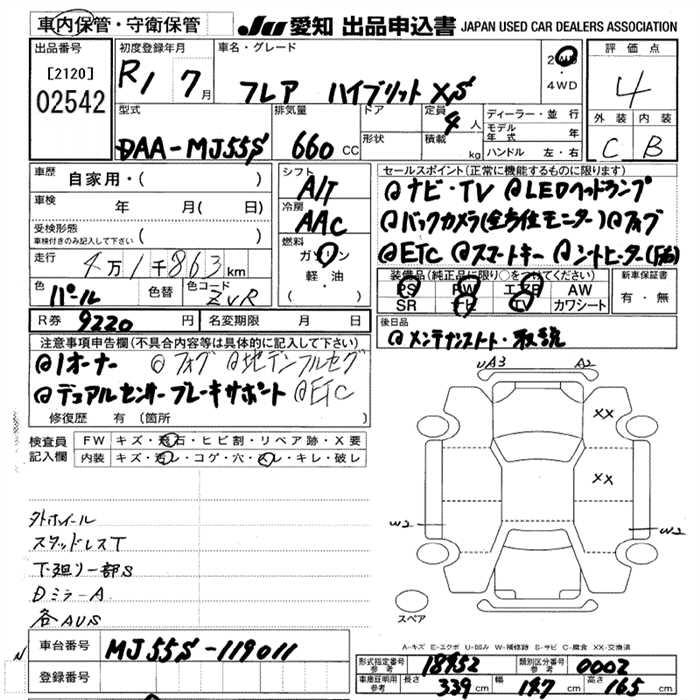 車内保管・守衛保管
JU 愛知 出品申込書 JAPAN USED CAR DEALERS ASSOCIATION
出品番号
[2120]
02542
初度登録年月
R1 7月
車名・グレード
フレア ハイブリットXS
2WD
・
4WD
評価点
4
外装 内装
C B
型式
DAA-MJ55S
排気量
660 CC
ドア
形状
定員 4人
積載 kg
ディーラー・並行
モデル年式 年
ハンドル 左・右
車歴
自家用・( )
車検
年 月( 日)
受検形態
車検付きのみ記入して下さい
( )
走行
4万1千863km
色
パール
色替
色コード
ZVR
シフト
A/T
冷房
AAC
燃料
ガソリン
軽・油
( )
R券 9220 円
名変期限 月 日
セールスポイント(正常に機能するものに限ります)
@ナビ・TV @LEDヘッドランプ
@バックカメラ(全方位モニター) @フォグ
@ETC @スマートキー @シートヒーター(F席)
装備品(純正品に限り○をつけてください)
PS PW エアB AW
SR ナビ TV カワシート
新車保証書
有・無
後日品
@メンテナンスノート・取説
注意事項申告欄(不具合内容等は具体的に記入して下さい)
@1オーナー @フォグ @地デジフルセグ
@デュアルセンサーブレーキサポート @ETC
修復歴 有(箇所 )
検査員記入欄
FW キズ・飛石・ヒビ割・リペア跡・X要
内装 キズ・汚レ・コゲ・穴・スレ・キレ・破レ
外ホイール
スタッドレスT
下廻り一部S
DミラーA
各AUS
UA3 A2
XX
XX
W2 W2
スペア
A-キズ E-エクボ U-凹み W-補修跡 S-サビ C-腐食 XX-交換済
車台番号 MJ55S-119011
登録番号
型式指定番号 参考 18952
類別区分番号 参考 0002
車庫証明用 参考 長さ 339 cm 幅 147 cm 高さ 165 cm